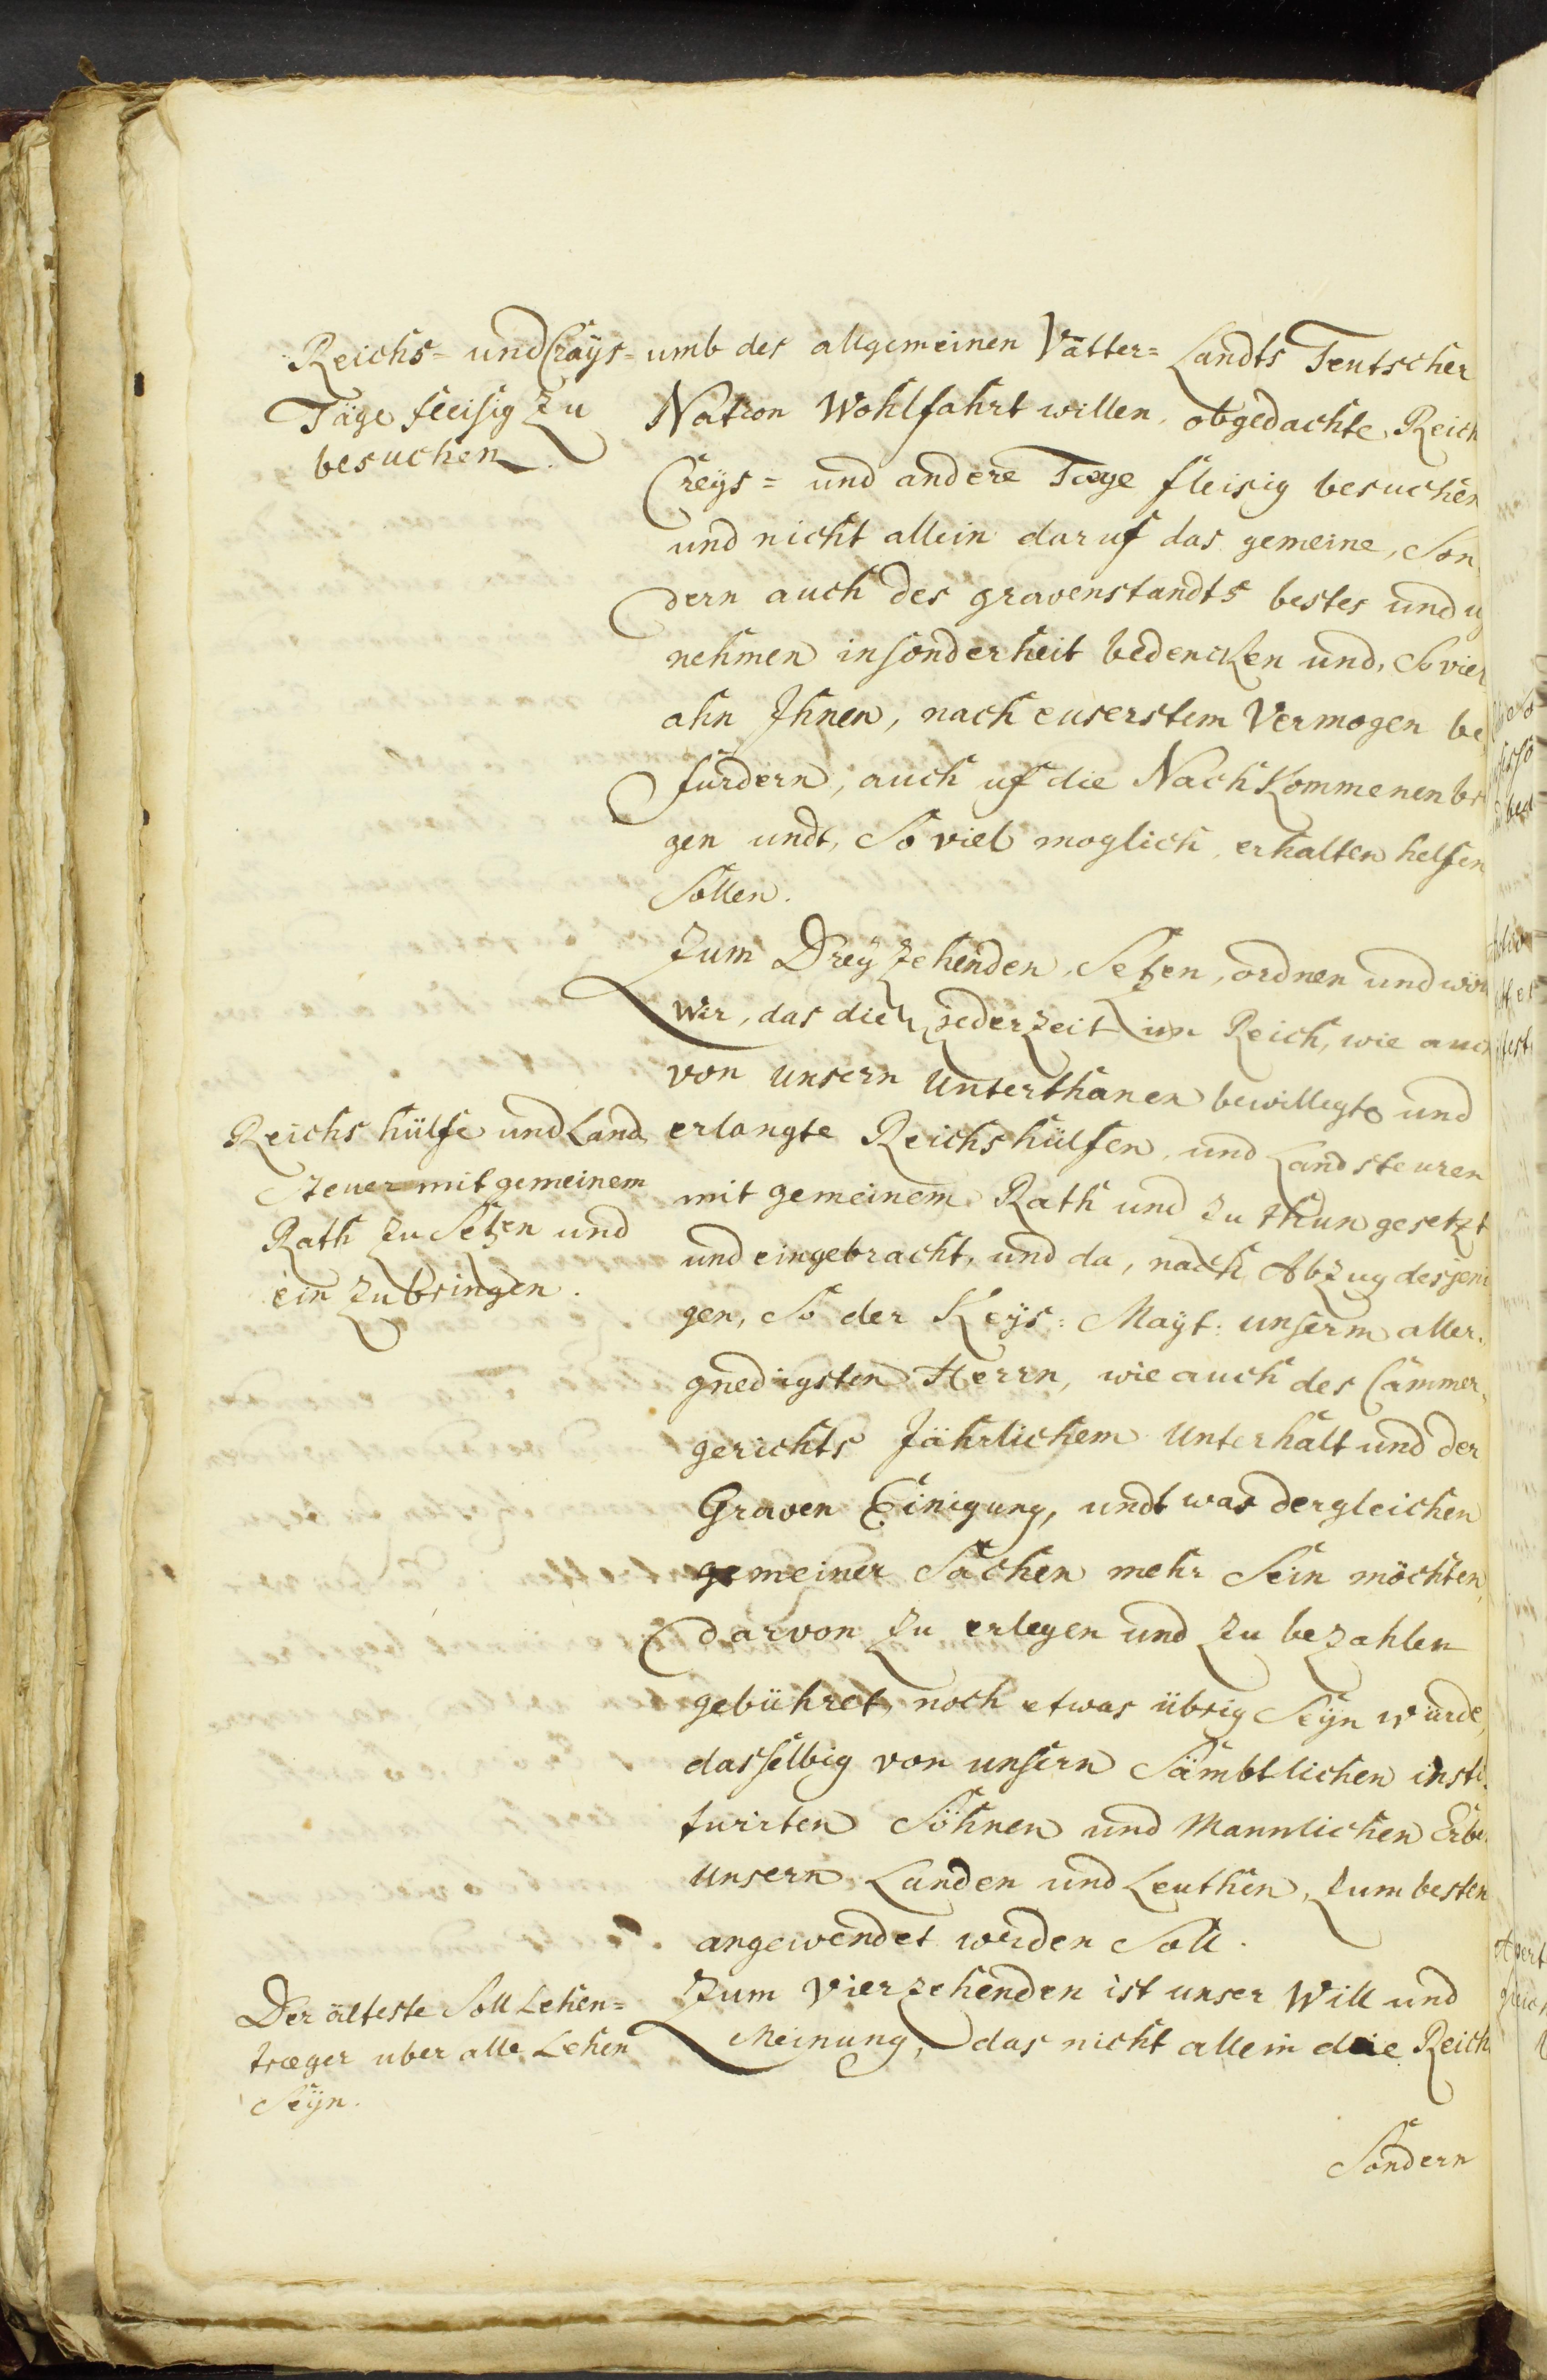 Reichs= und Crays=
Täge fleisig zu
besuchen.
umb des allgemeinen Vätter= Landts Teutscher
Nation Wohlfahrt willen, obgedachte Reich
Creys= und andere Tæge fleisig besuchen
und nicht allein daruf das gemeine, Son
dern auch des gravenstandts bestes und u
nehmen insonderheit bedencken und, So viel
ahn Ihnen, nach euserstem Vermogen be
fürdern, auch uf die NachKommenen br
gen undt, So viel moglich, erhalten helfen
Sollen.
Zum Dreyzehenden, Setzen, ordnen und wol
Wir, das die jederzeit im Reich, wie auch
von unsern Unterthanen bewilligte und
Reichs hülfe und Land
Steuer mit gemeinem
Rath zu Setzen und
ein zu bringen.
erlangte Reichshülfen, und Landsteuren
mit gemeinem Rath und zu thun gesetzt
und eingebracht, und da, nach Abzug desjeni
gen, So der Keys: Mayt: unserm aller,
gnedigsten Herrn, wie auch des Cammer,
gerichts Jährlichem Unterhalt und der
Graven Einigung, undt was dergleichen
gemeiner Sachen mehr Sein möchten,
darvon zu erlegen und zu bezahlen
gebühret, noch etwas übrig Seyn würde,
dasselbig von unsern Sämbtlichen insti,
tuirten Söhnen und Mannlichen Erbe
unsern Landen und Leuthen, Zum besten
angewendet werden Soll.
Der älteste Soll Lehen=
træger uber alle Lehen
Seyn.
Zum Vierzehenden ist unser Will und
Meinung, das nicht allein die Reich
Sondern